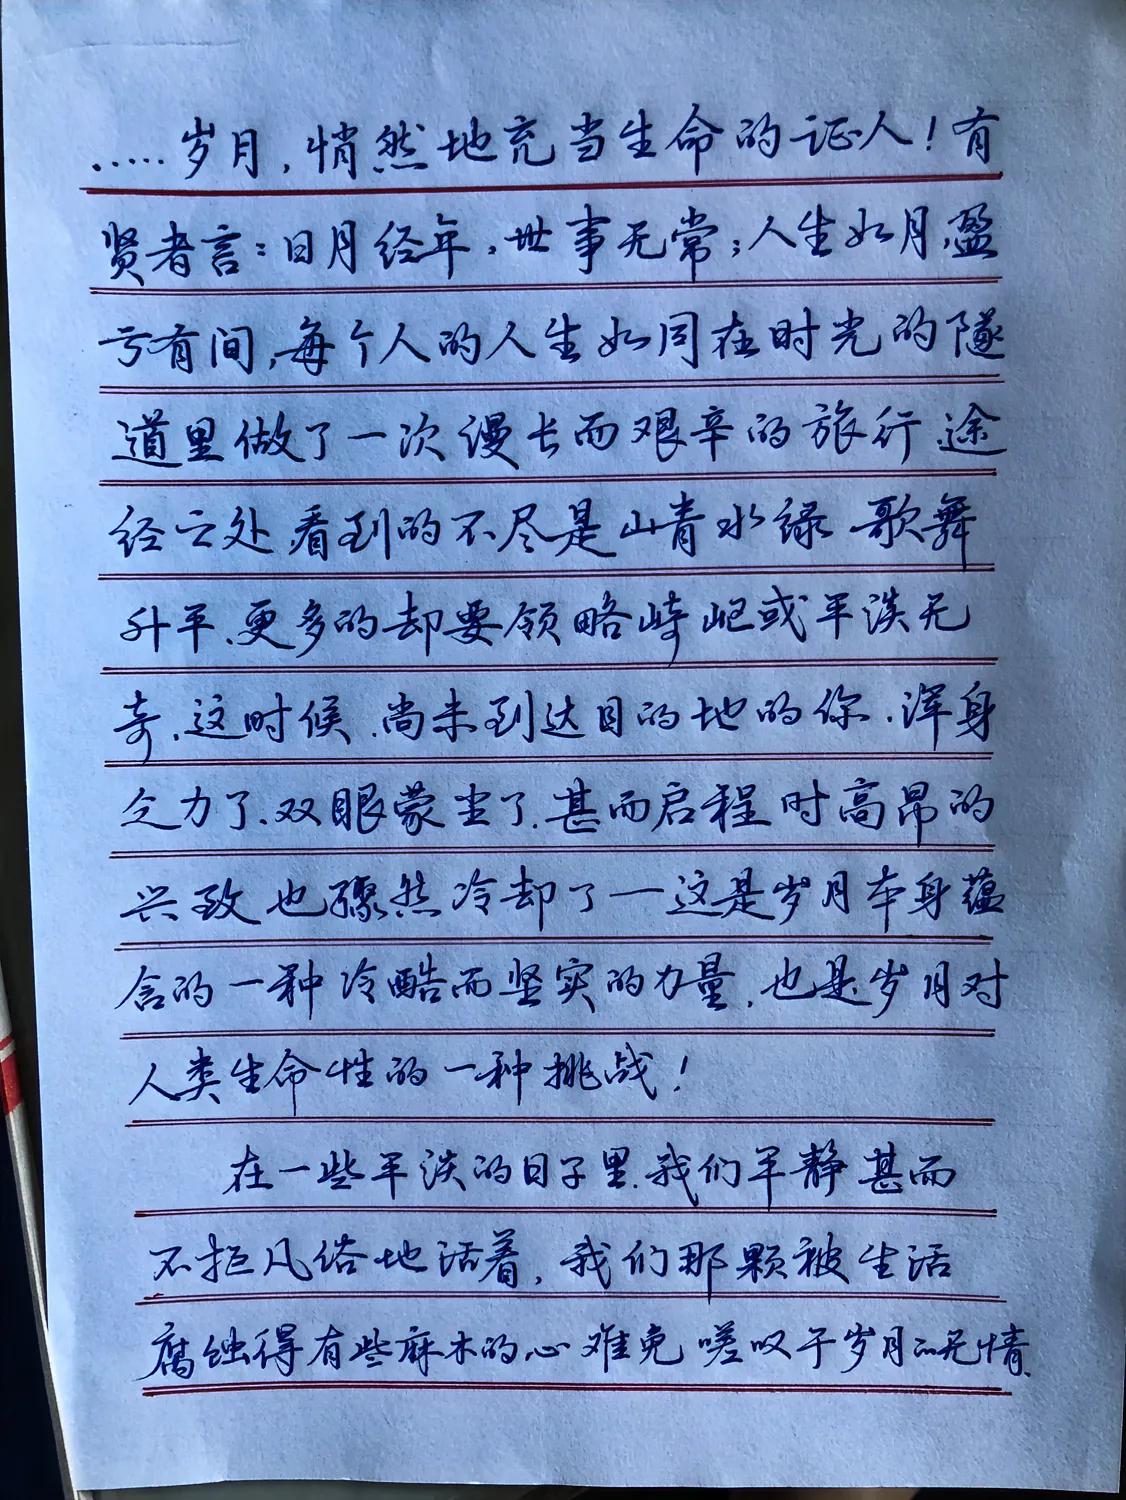 .....岁月,悄然地充当生命的证人!有
贤者言:日月经年,世事无常;人生如月,盈
亏有间,每个人的人生如同在时光的隧
道里做了一次漫长而艰辛的旅行.途
经之处,看到的不尽是山青水绿 歌舞
升平、更多的却要领略崎岖或平淡无
奇.这时候.尚未到达目的地的你.浑身
乏力了、双眼蒙尘了.甚而启程时高昂的
兴致也骤然冷却了—这是岁月本身蕴
含的一种冷酷而坚实的力量.也是岁月对
人类生命性的一种挑战!
在一些平淡的日子里.我们平静甚而
不拒凡俗地活着,我们那颗被生活
腐蚀得有些麻木的心难免嗟叹于岁月的无情.